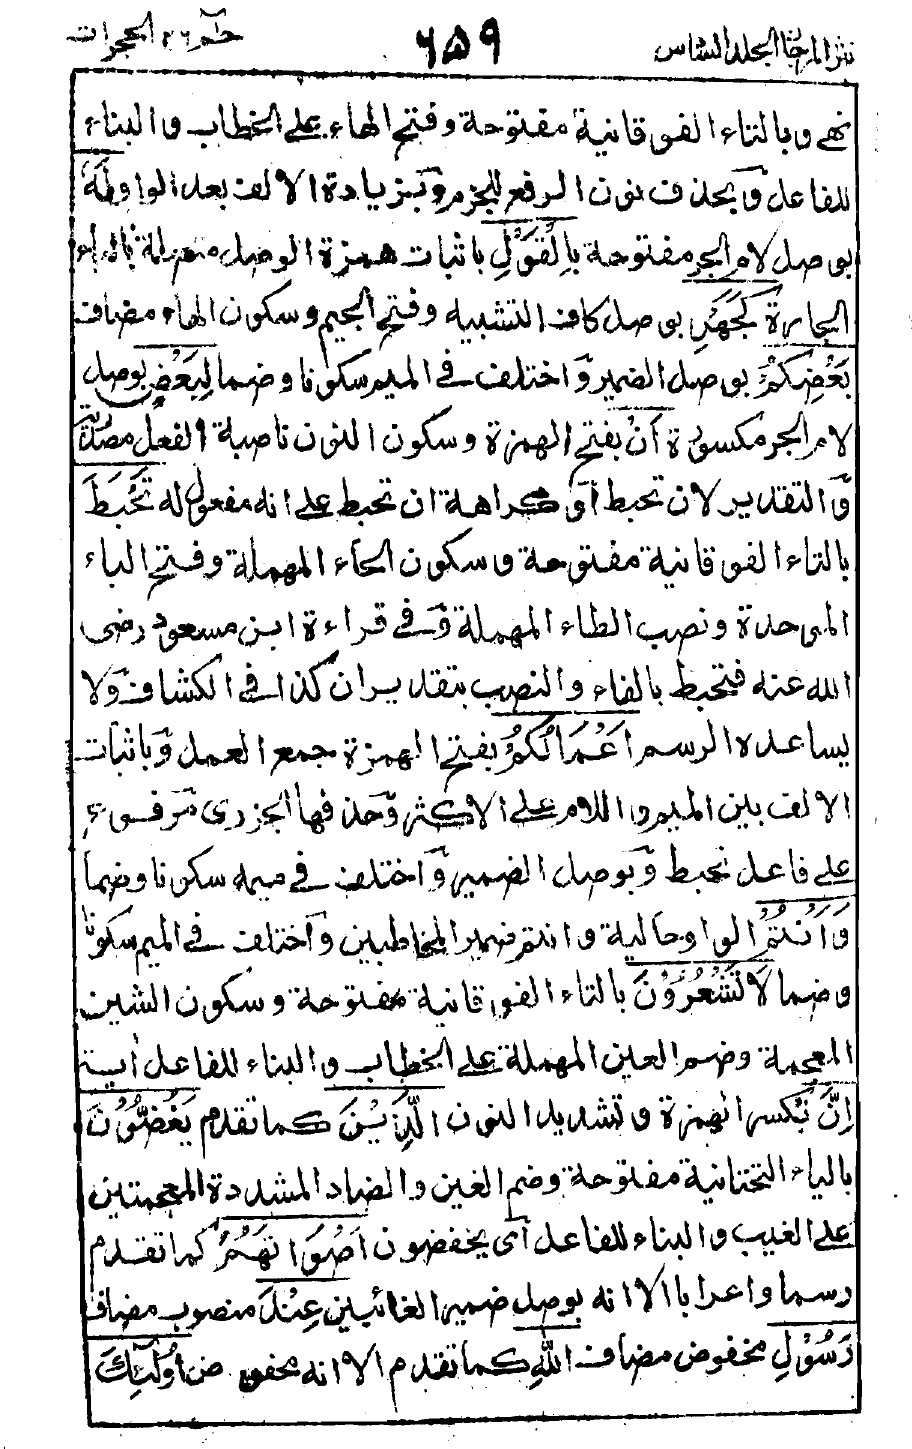 نثر المرجان المجلد السادس
٦٥٩
حٰم ٢٦ الحجرات
نهى وبالتاء الفوقانية مفتوحة وفتح الهاء على الخطاب والبناء
للفاعل وَبحذف نون الرفع للجزم وَبزيادة الالف بعد الواو لَهُ
بوصل لام الجر مفتوحة بِالْقَوْلِ باثبات همزة الوصل متصلة بالباء
الجارة كَجَهْرِ بوصل كاف التشبيه وفتح الجيم وسكون الهاء مضاف
بَعْضِكُمْ بوصل الضمير وَاختلف فى الميم سكونا وضما لِبَعْضٍ بوصل
لام الجر مكسورة اَنْ بفتح الهمزة وسكون النون ناصبة الفعل مصدرية
وَالتقدير لان تحبط اَى كراهة ان تحبط على انه مفعول له تَحْبَطَ
بالتاء الفوقانية مفتوحة وسكون الحاء المهملة وفتح الباء
الموحدة ونصب الطاء المهملة وَفى قراءة ابن مسعود رضى
الله عنه فتحبط بالفاء والنصب بتقدير ان كذا فى الكشاف وَلا
يساعده الرسم اَعْمَالُكُمْ بفتح الهمزة جمع العمل وَباثبات
الالف بين الميم واللام على الاكثر وَحذفها الجزرى مرفوع
على فاعل تحبط وَبوصل الضمير وَاختلف فى ميمه سكونا وضما
وَاَنْتُمْ الواو حالية وانتم ضمير المخاطبين وَاختلف فى الميم سكونا
وضما لَا تَشْعُرُوْنَ بالتاء الفوقانية مفتوحة وسكون الشين
المعجمة وضم العين المهملة على الخطاب والبناء للفاعل اٰية
اِنَّ بكسر الهمزة وتشديد النون الَّذِيْنَ كما تقدم يَغُضُّوْنَ
بالياء التحتانية مفتوحة وضم الغين والضاد المشددة المعجمتين
على الغيب والبناء للفاعل اَى يخفضون اَصْوَاتَهُمْ كما تقدم
رسما واعرابا الا انه بوصل ضمير الغائبين عِنْدَ منصوب مضاف
رَسُوْلِ مخفوض مضاف اللّٰهِ كما تقدم الا انه مخفوض اُولٰٓئِكَ